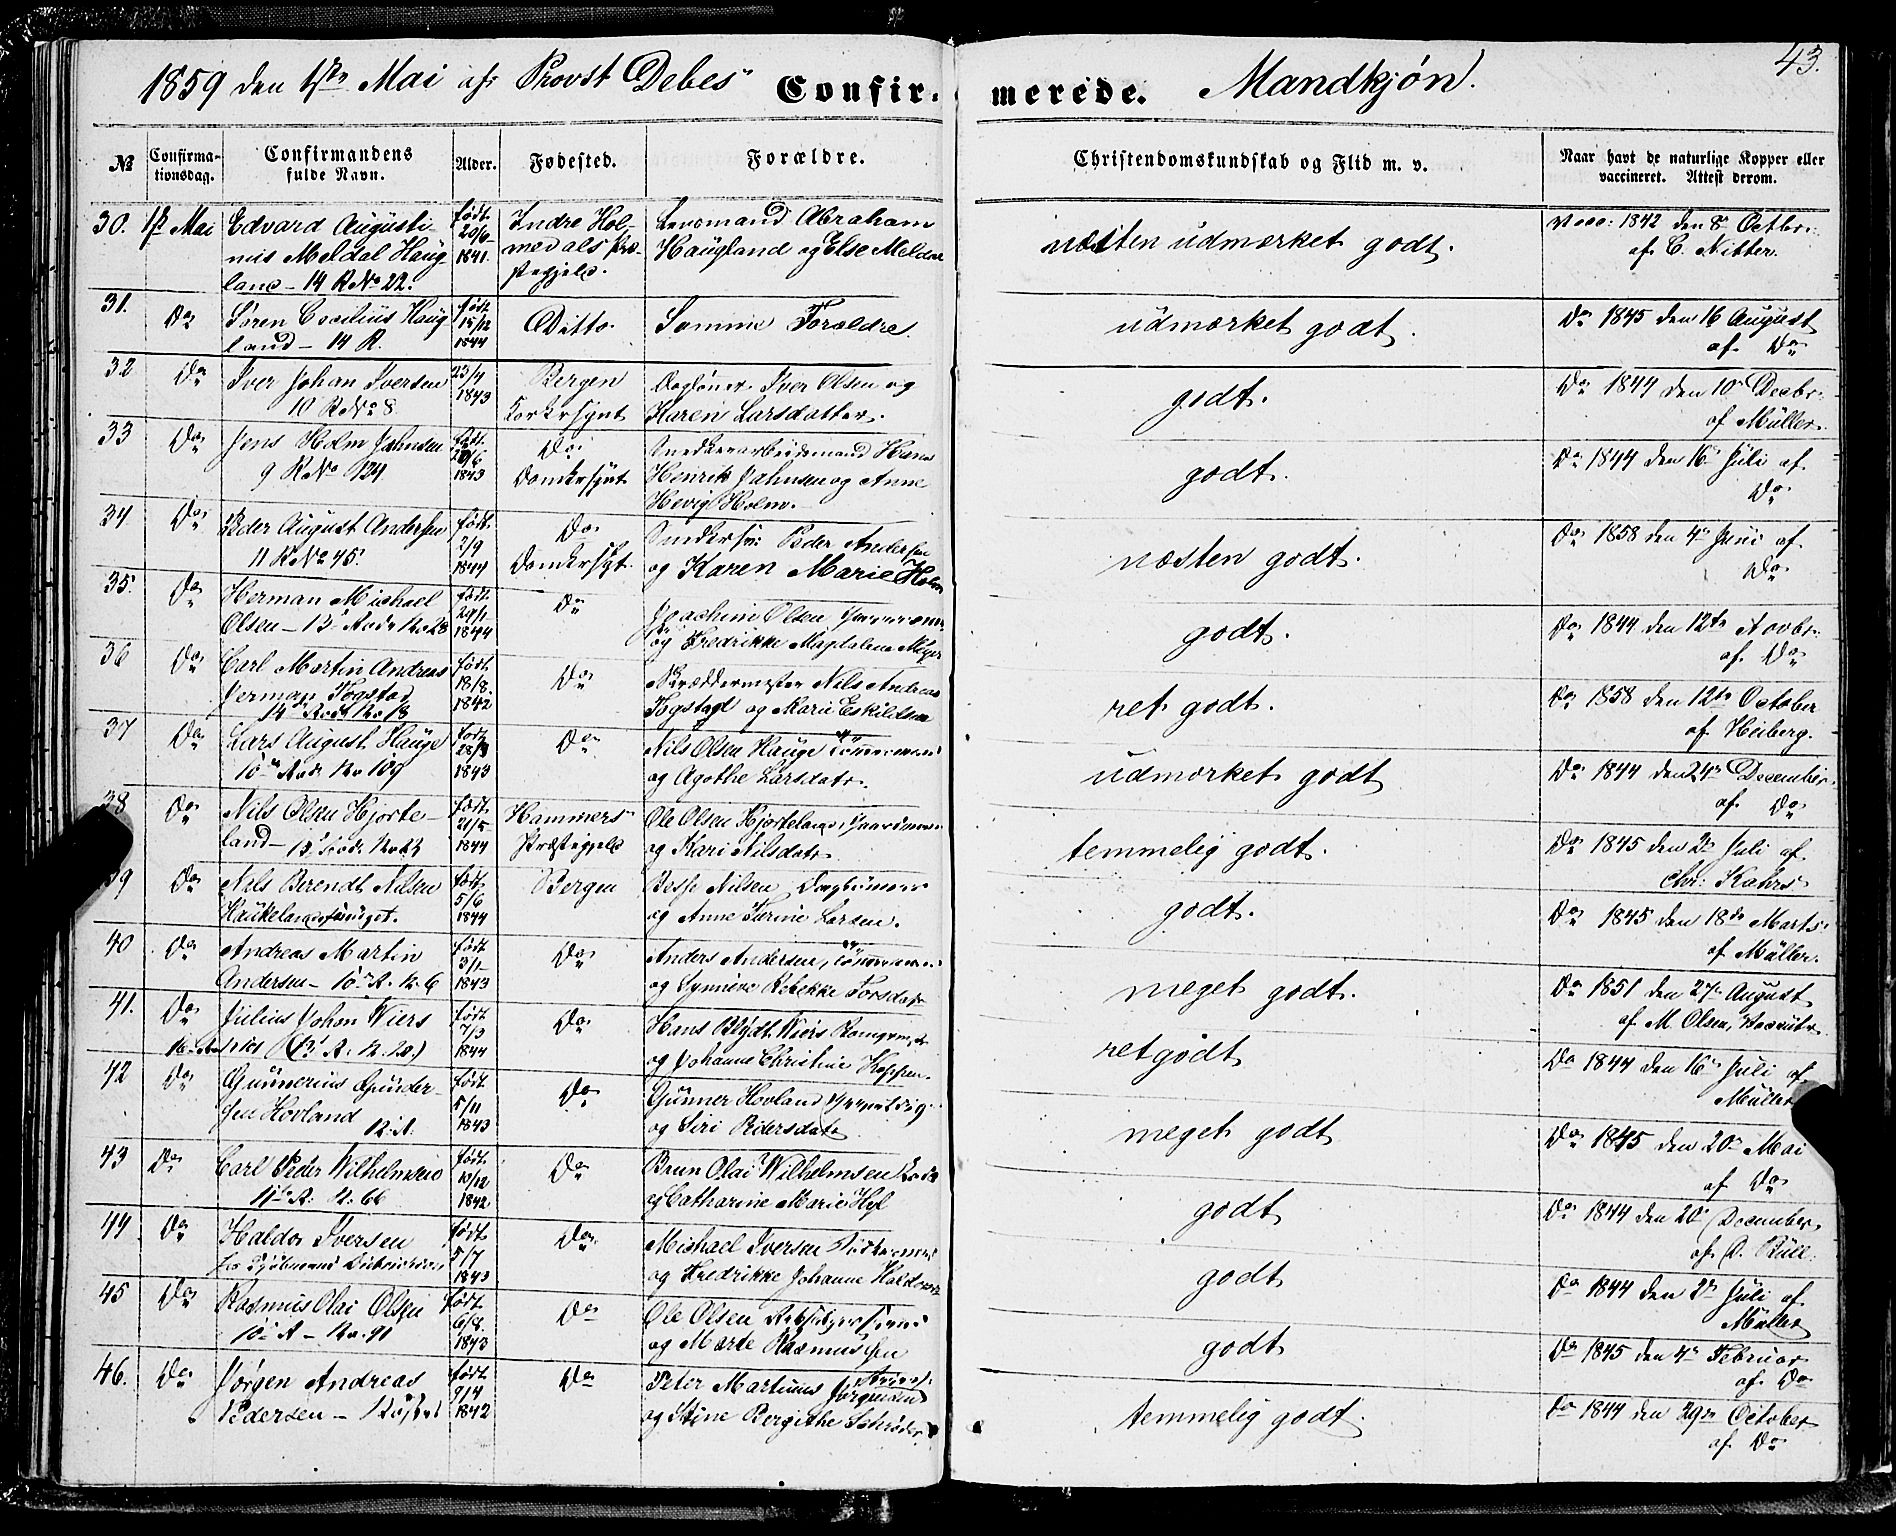 43.
1859 den 1ste Mai af Provst Debes
Confir- merede. Mandkjøn.
№ Confirma-tionsdag. Confirmandens fulde Navn. Alder. Fødested. Forældre. Christendomskundskab og Flid m. v. Naar havt de naturlige Kopper eller vaccineret. Attest derom.
30. 1ste Mai Edvard Augusti- født Indre Hol- Abraham
nus Meldal Haug- 1841. medals Præ- Haugland og Else Meldal
land – 14 R No 22. stegjeld.
næsten udmærket godt.
Vacc: 1842 den 8 Octbr:
af C. Nitter.
31. Do Søren Cecilius Haug- født 15/12 1844 Ditto Samme Forældre.
land – 14 R.
udmærket godt.
Do 1845 den 16 August
af Do
32 Do Iver Johan Iversen 23/4 1843 Bergen Dagløner Iver Olsen og
10 R No 8. Korskrsgnt Karen Larsdatter.
godt.
Do 1844 den 10 Decbr:
af Müller.
33 Do Jens Holm Jahnsen født 1843 Do
9 R No 124 Domkrsgnt Henrik Jahnsen og Anne
Hevig Holm.
godt.
Do 1844 den 16 Juli af
Do
34 Do Peder August Andersen født 2/9 1844 Do Peder Andersen
11 R No 45. Domkrsgt. og Karen Marie Holm
næsten godt.
Do 1858 den 4 Juni af
Do
35. Do Herman Michael født 1844 Do Joachim Olsen
Olsen – 13 Rode No 28 og Fredrikke Magdalena Meyer
godt.
Do 1844 den 12te Novbr:
af Do
36 Do Carl Martin Andreas født 18/8 1842 Do Skræddermester Nils Andreas
Herman Fogstad Fogstad og Marie Eskildsen
14 Rode No 18
ret godt.
Do 1858 den 12te October
af Heiberg.
37 Do Lars August Hauge født 28/3 1843 Do Nils Olsen Hauge Tømmermand
10 Rode No 109 og Agathe Larsdatr.
udmærket godt
Do 1844 den 24 December
af Do
38 Do Nils Olsen Hjorte- født 21/5 1844 Hammers Ole Olsen Hjorteland, Gaardmand
land – 13 Rode No 23 Præstegjeld og Kari Nilsdatr.
temmelig godt.
Do 1845 den 2 Juli af
Chr: Kahrs
39 Do Nils Berendt Nilsen født 5/6 1844 Bergen Nilsen
Haukelandssmuget. og Anne Karine Larsen.
godt.
Do 1845 den 18de Marts
af Müller.
40 Do Andreas Martin født 3/1 1843 Do Anders Andersen, Tømmermand
Andersen – 10 R. N. 6 og Synnive Rebekke Torsdatr
meget godt.
Do 1851 den 27 August
af M. Olsen,
41. Do Julius Johan Wiers født 7/3 1844 Do Hans Blydt Wiers
og Johanne Christine Koppen.
ret godt
Do 1844 den 16 Juli af
Müller
42 Do Gunnerius Gunder- født 5/11 1843 Do Gunner Hovland
sen Hovland og Siri Pedersdatr
meget godt
Do 1845 den 20 Mai
af Do
43 Do Carl Peder Wilhelmsen født 10/12 1842 Do Brun Olai Wilhelmsen
11te R. N. 66 og Catharine Marie
godt
Do 1844 den 20 December
af D. Bull.
44 Do Haldor Iversen født 5/7 1843 Do Michael Iversen
og Fredrikke Johanne
godt
Do 1844 den 2 Juli af
Müller
45 Do Rasmus Olai Olsen født 6/8 1843 Do Ole Olsen
10 R – No. 91 og Marte Rasmussen
godt
Do 1845 den 4 Februar
af Do
46. Do Jørgen Andreas født 9/4 1842 Do Peter Martinus Jørgensen
Pedersen – og Stine Bergithe Schrøder
temmelig godt.
Do 1844 den 29de October
af Do